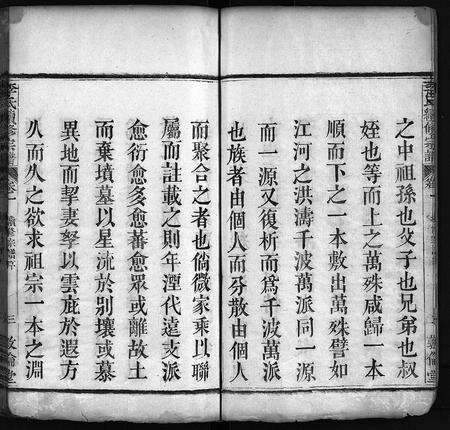 之中祖孫也父子也兄弟也叔
姪也等而上之萬殊咸歸一本
順而下之一本敷出萬殊譬如
江河之洪濤千波萬派同一源
而一源又復析而爲千波萬派
也族者由個人而分散由個人
而聚合之者也倘微家乘以聯
屬而註載之則年湮代遠支派
愈衍愈多愈蕃愈眾或離故土
而棄墳墓以星流於別壤或慕
異地而挈妻孥以雲庇於遐方
久而久之欲求祖宗一本之淵
李氏續修宗譜 卷一
三 敦倫堂